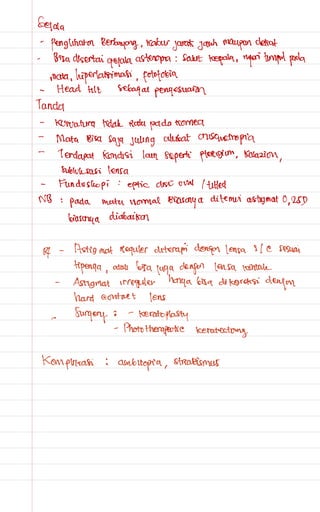 Gejala
- Penglihatan Berbayang, kabur jarak jauh maupun dekat
- Bisa disertai gejala astenopia : Sakit kepala, nyeri tumpul pada
mata, hiperlakrimasi, fotofobia
- Head tilt sebagai penyesuaian
Tanda
- Kurvatura tidak Rata pada kornea
- Mata Bisa saja juling akibat
- Terdapat kondisi lain seperti pterigium, kalazion,
subluksasi lensa
- Funduskopi : optic disc oval / tilted
NB : pada mata normal Biasanya ditemui astigmat 0,25D
biasanya diabaikan
- Astigmat Reguler diterapi dengan lensa S/C sesuai
tipenya, atau bisa juga dengan lensa kontak
- Astigmat irreguler hanya bisa dikoreksi dengan
hard contact lens
- Surgery : - keratoplasty
- Phototherapeutic keratectomy
Komplikasi : ambliopia, strabismus